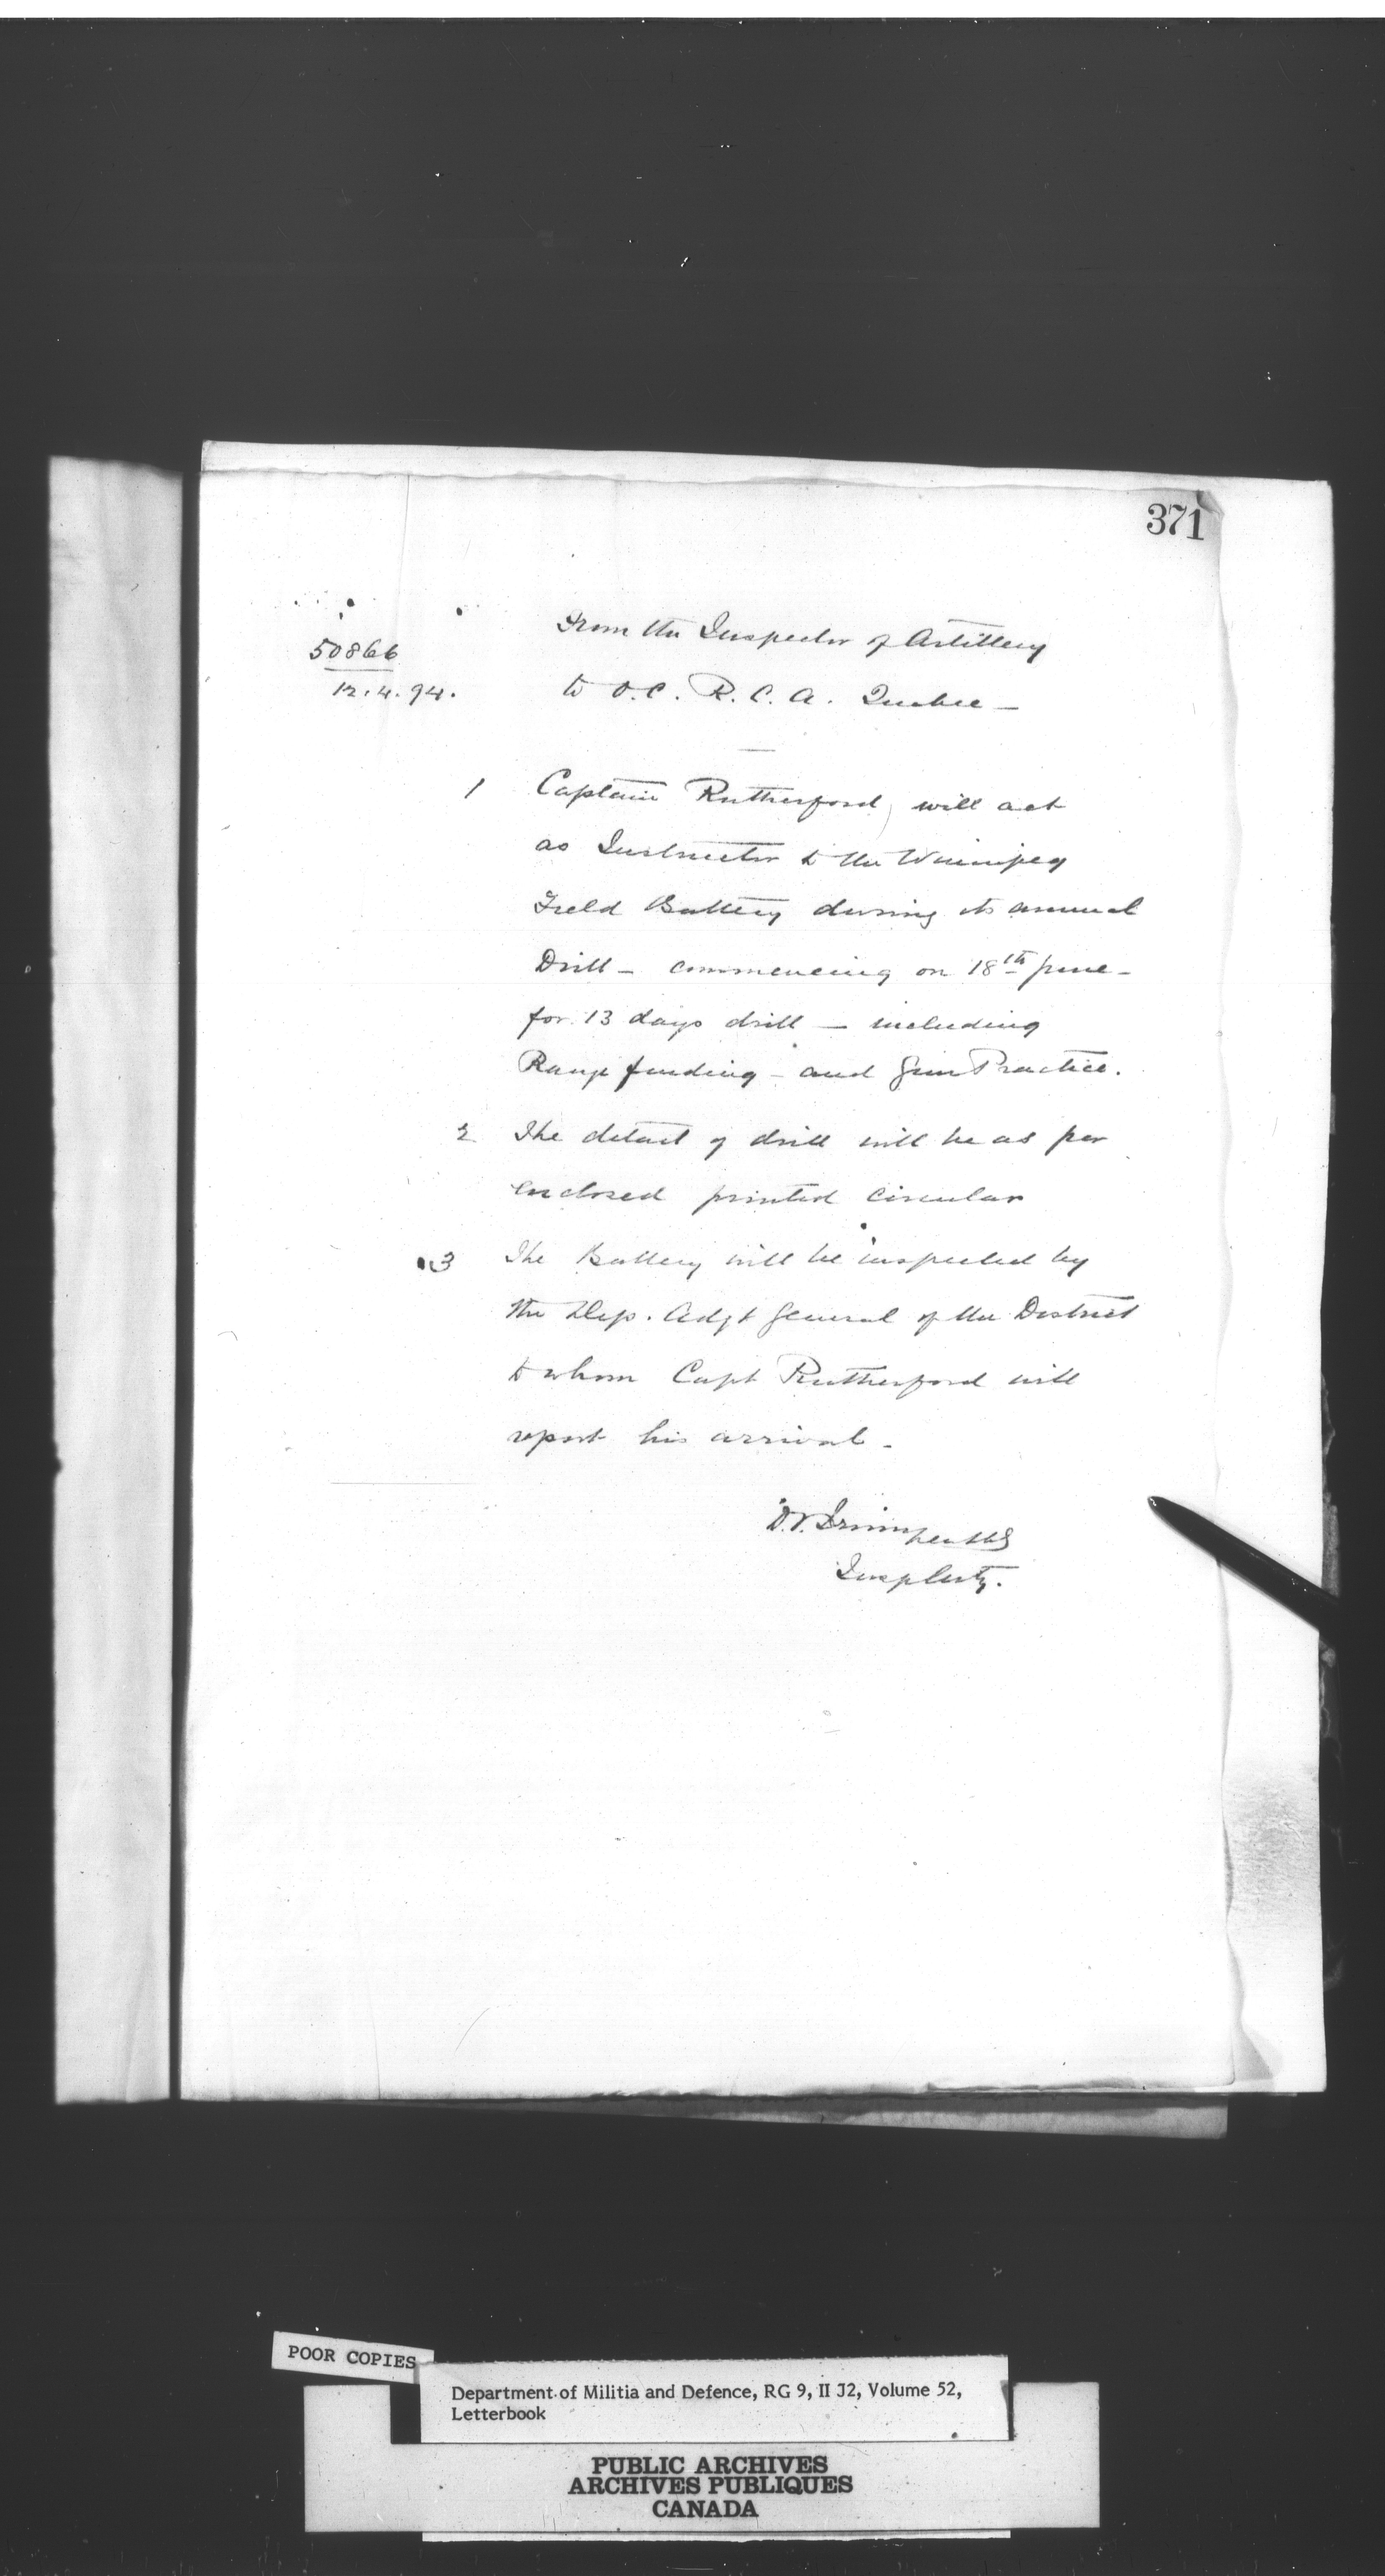 371
50866
12.4.94.
From the Inspector of Artillery
to O.C. R.C.A. Quebec —
1 Captain Rutherford, will act
as Instructor to the Winnipeg
Field Battery during its annual
Drill — commencing on 18th June —
for 13 days drill — including
Range finding — and Gun Practice.
2 The detail of drill will be as per
enclosed printed circular
3 The Battery will be inspected by
the Dep. Adjt General of the District
to whom Capt Rutherford will
report his arrival —
D.T. Irwin
POOR COPIES
Department of Militia and Defence, RG 9, II J2, Volume 52,
Letterbook
PUBLIC ARCHIVES
ARCHIVES PUBLIQUES
CANADA